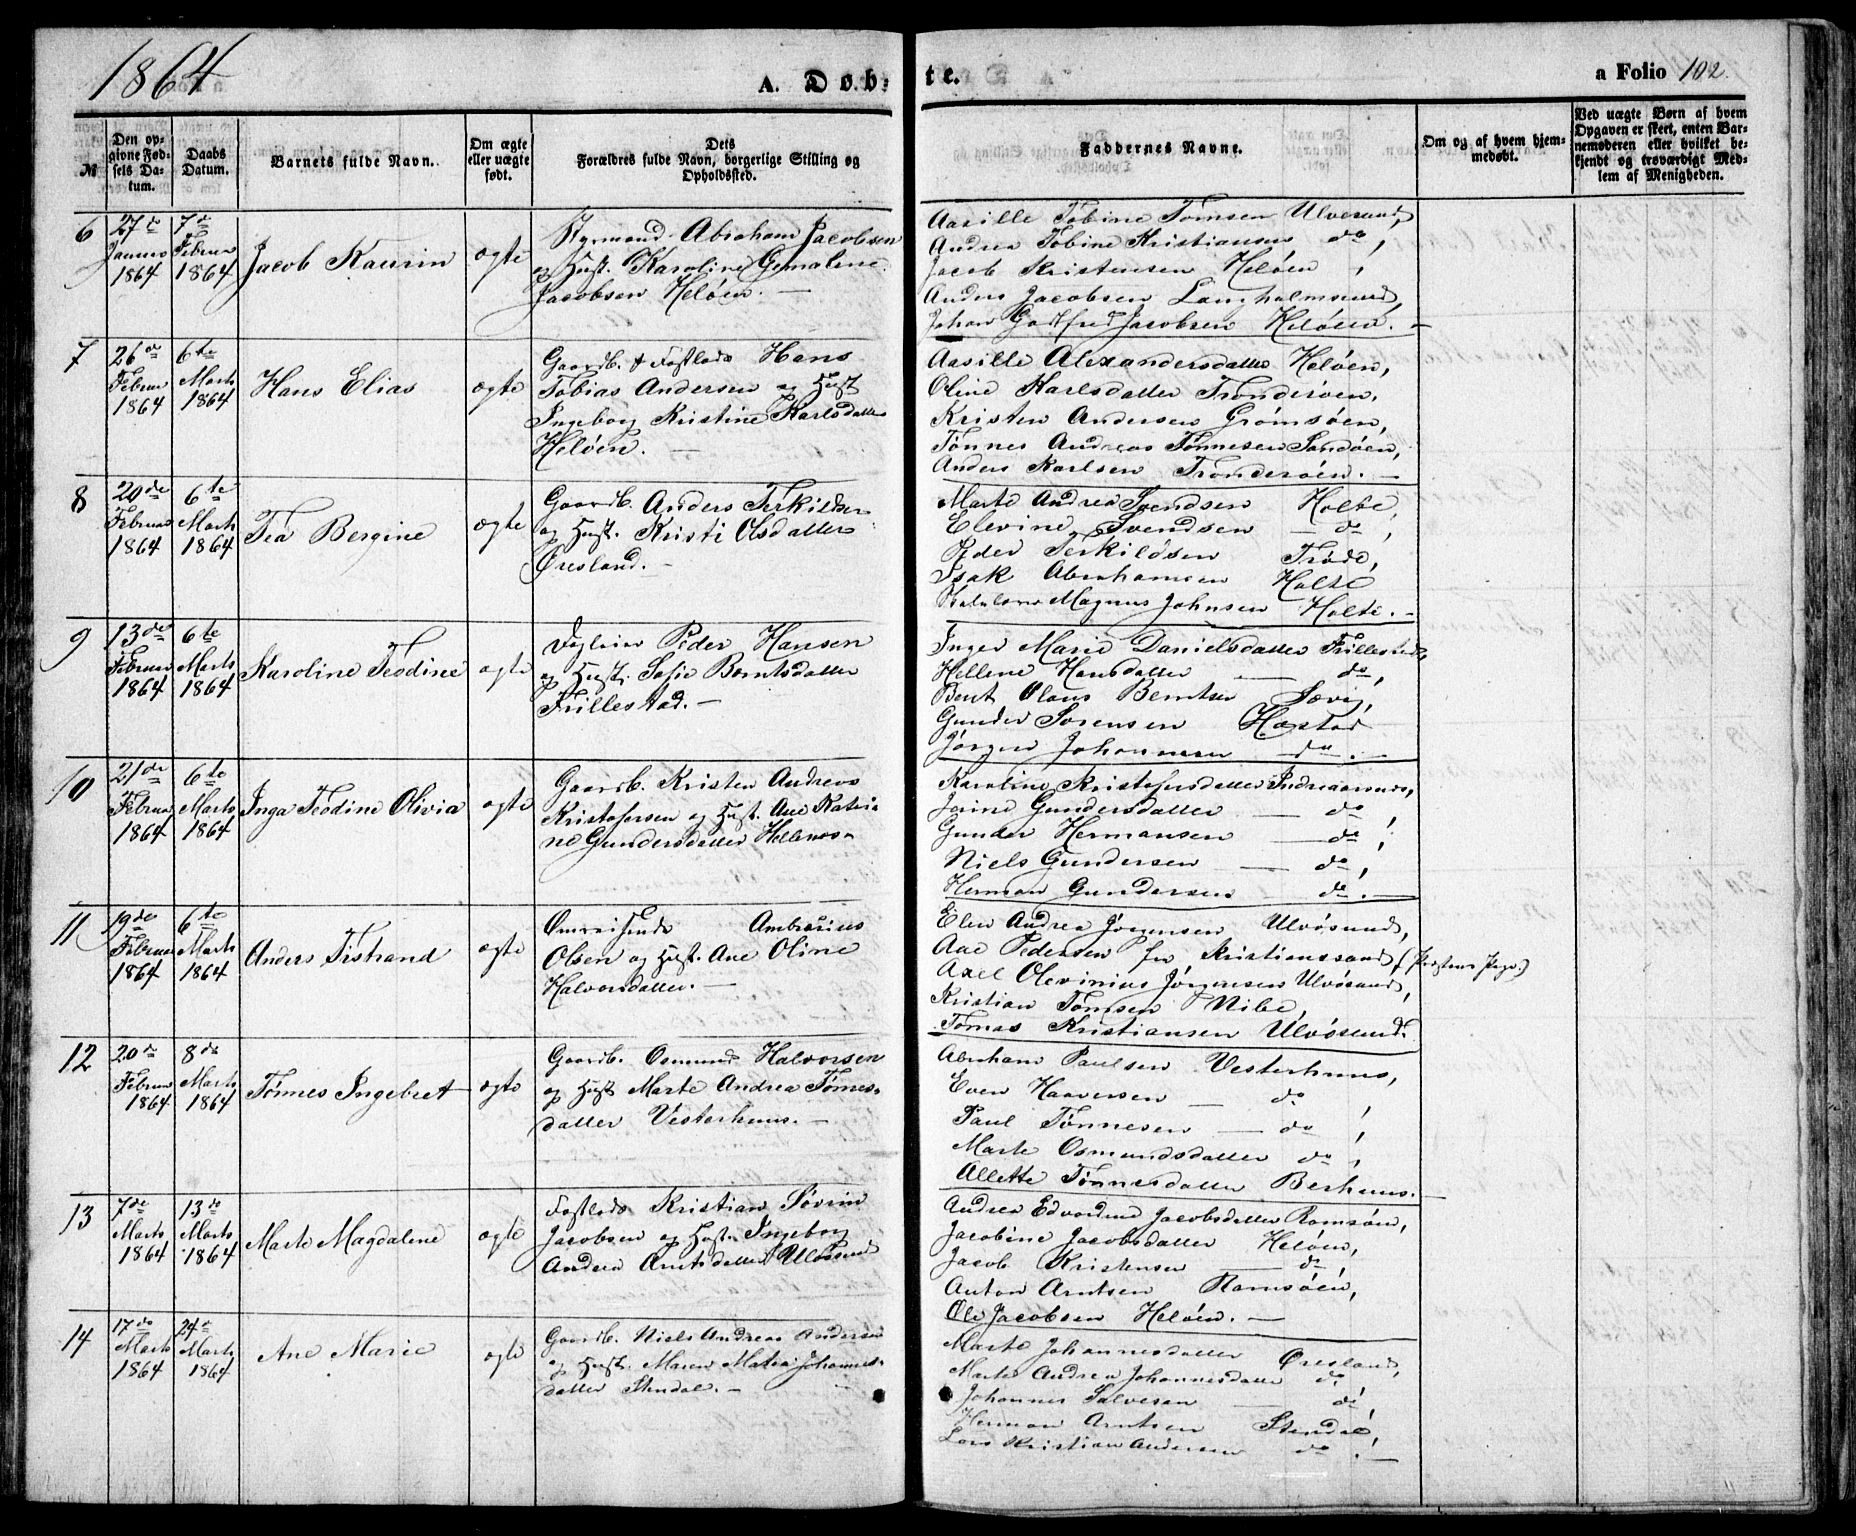 1864
A. Døb-
te.
a Folio 102.
№
Den op-
givne Fød-
sels Da-
tum.
Daabs
Datum.
Barnets fulde Navn.
Om ægte
eller uægte
født.
Dets
Forældres fulde Navn, borgerlige Stilling og
Opholdssted.
Faddernes Navne.
Om og af hvem hjem-
medøbt.
Ved uægte Børn af hvem
Opgaven er skeet, enten Bar-
nemoderen eller hvilket be-
kjendt og troværdigt Med-
lem af Menigheden.
6
27de
Januar
1864
7de
Februar
1864
Jacob Kaurin
ægte
Styrmand Abraham Jacobsen
og Hust. Karoline Gemalene
Jacobsen Heløen. —
Aasille Tobine Tomsen Ulvøsund,
Andrea Tobine Kristiansen do,
Jacob Kristensen Heløen,
Anders Jacobsen Langholmsund,
Johan Gotfred Jacobsen Heløen. —
7
26de
Februar
1864
6te
Marts
1864
Hans Elias
ægte
Gaardb. & Fastlods Hans
Tobias Andersen og Hust
Ingeborg Kristine Karlsdatter
Heløen. —
Aasille Alexandersdatter Heløen,
Oline Karlsdatter Trønderøen,
Kristen Andersen Grømsøen,
Tønnes Andreas Tønnesen Sandøen,
Anders Karlsen Trønderøen. —
8
20de
Februar
1864
6te
Marts
1864
Tea Bergine
ægte
Gaardb. Anders Terkildsen
og Hust. Kristi Olsdatter
Øresland. —
Marte Andrea Svendsen Holte,
Elevine Svendsen — do,
Peder Terkildsen Trøde,
Isak Abrahamsen Holte
Magnus Johnsen Holte. —
9
13de
Februar
1864
6te
Marts
1864
Karoline Teodine
ægte
Peder Hansen
og Hust. Sofie Berntsdatter
Frillestad. —
Inger Marie Danielsdatter Frillestad,
Hellene Hansdatter — do,
Bent Olaus Berntsen Søvig,
Gunder Sørensen Hæstad
Jørgen Johannesen — do. —
10
21de
Februar
1864
6te
Marts
1864
Inga Teodine Olivia
ægte
Gaardb. Kristen Andreas
Kristofersen og Hust. Ane Katri-
ne Gundersdatter
Karoline Kristofersdatter Indreaarnes,
Jorine Gundersdatter — do,
Gunder Hermansen — do,
Niels Gundersen — do,
Herman Gundersen do. —
11
19de
Februar
1864
6te
Marts
1864
Anders Tistrand
ægte
Omreisende Ambrosius
Olsen og Hust. Ane Oline
Halvorsdatter. —
Elen Andrea Jørgensen Ulvøsund,
Aae Pedersen fra Kristianssand, (Præstens Pige.)
Axel Olevinius Jørgensen Ulvøsund,
Kristian Tømsen Nibe,
Tomas Kristiansen Ulvøsund.
12
20de
Februar
1864
8de
Marts
1864
Tønnes Ingebret
ægte
Gaardb. Osmund Halvorsen
og Hust Marte Andrea Tønnes-
datter Vesterhuus. —
Abraham Paulsen Vesterhuus,
Even Haaversen — do,
Paul Tønnesen — do,
Marte Osmundsdatter do,
Allette Tønnesdatter Berhuus. —
13
7de
Marts
1864
13de
Marts
1864
Marte Magdalene
ægte
Fastlods Kristian Sørin
Jacobsen og Hust. Ingeborg
Andrea Arntsdatter Ulvøsund
Andrea Edvardine Jacobsdatter Ramsøen,
Jacobine Jacobsdatter Heløen,
Jacob Kristensen — do,
Anton Arntsen Ramsøen,
Ole Jacobsen Heløen. —
14
17de
Marts
1864
24de
Marts
1864
Ane Marie
ægte
Gaardb. Niels Andreas Andersen
og Hust. Maren Matea Johannes-
datter Stendal. —
Marte Johannesdatter Øresland,
Marte Andrea Johannesdatter do,
Johannes Salvesen — do,
Herman Arntsen Stendal,
Lars Kristian Andersen do. —